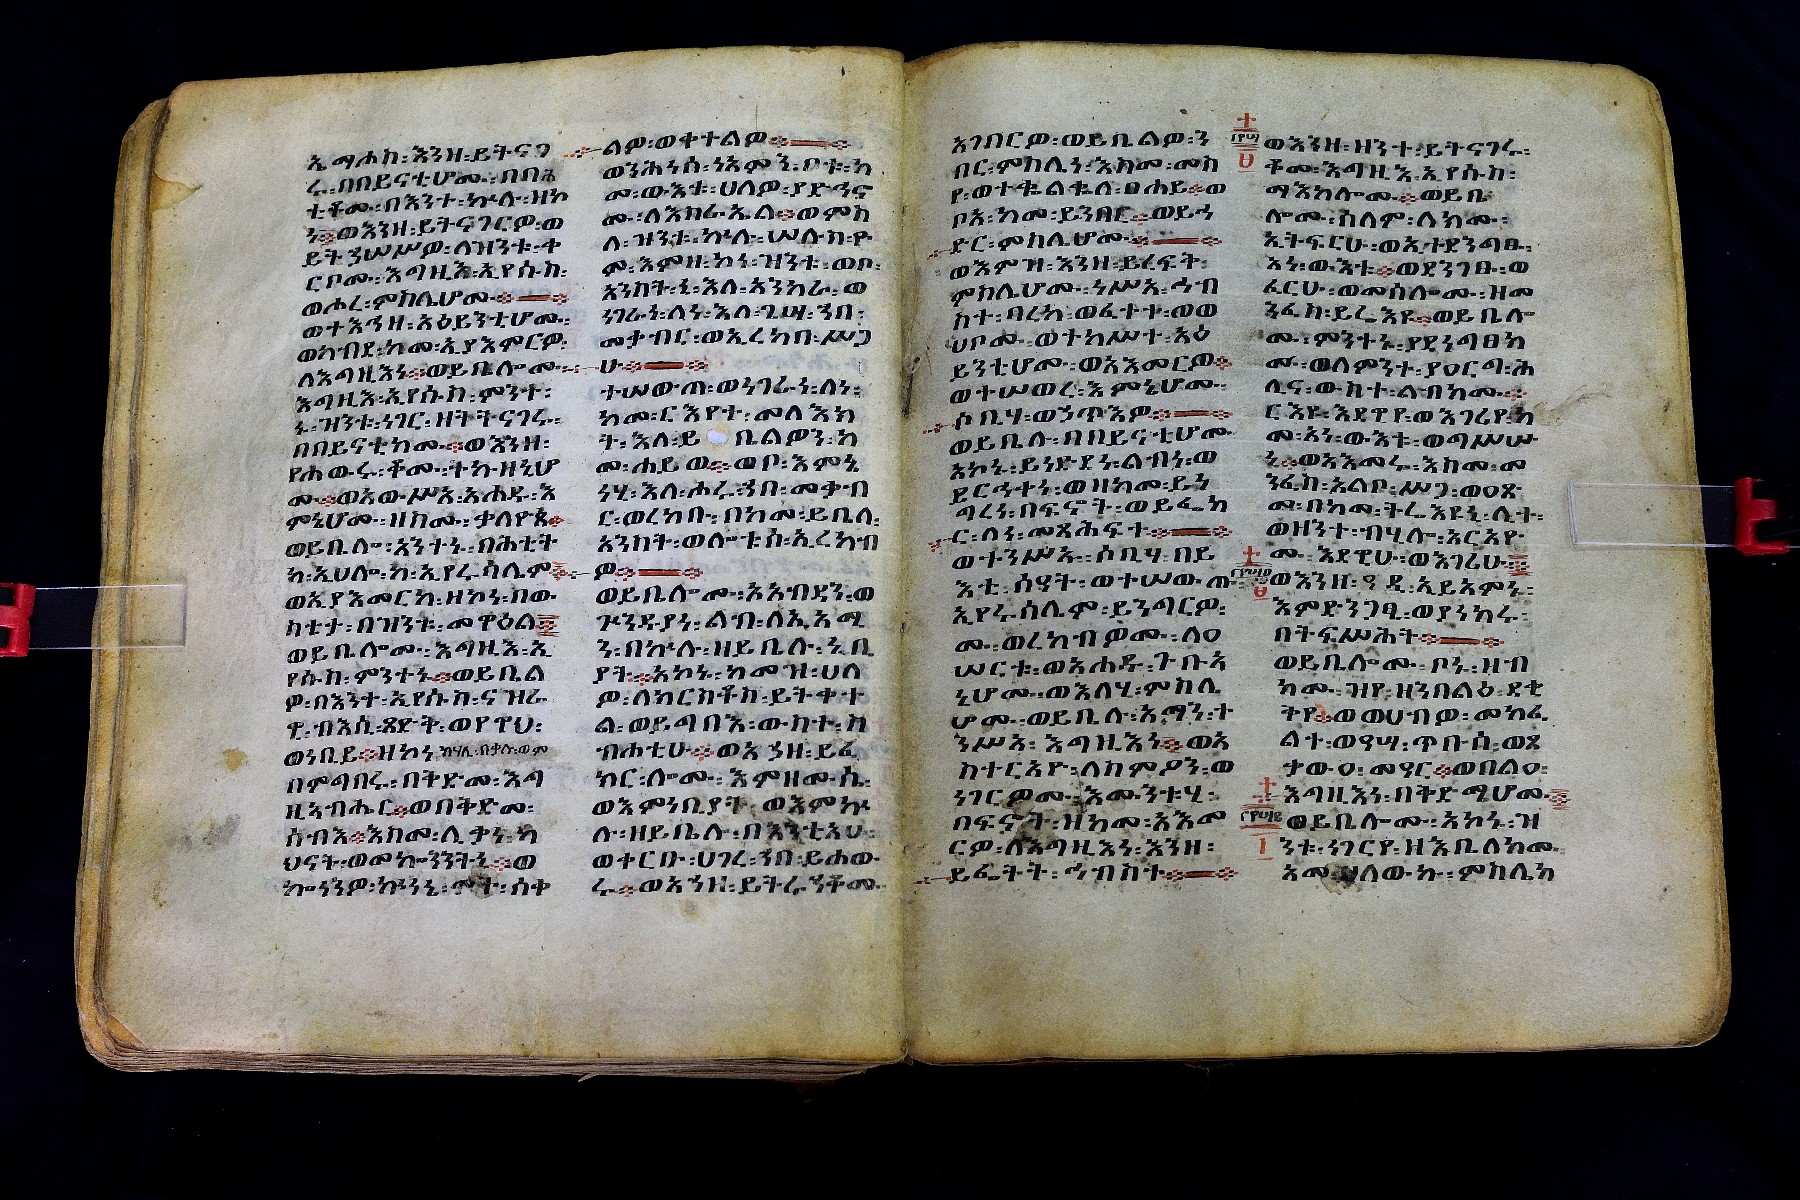 ኤማሑስ፡እንዘ፡ይትናገ
ሩ፡በበይናቲሆሙ፡በበእ
ተ፡ቶሙ፡በእንተ፡ኵሉ፡ዘኮ
ነ፨ወእንዘ፡ይትናገርዎ፡ወ
ይትኃሠሥዎ፡ለዝንቱ፡ቀ
ርቦሙ፡እግዚእ፡ኢየሱስ፡
ወሖረ፡ምስሌሆሙ፨
ወተእኅዘ፡አዕይንቲሆሙ፡
ወከብደ፡ከመ፡ኢያእምርዎ፡
ለእግዚእነ፨ወይቤሎሙ፡
እግዚእ፡ኢየሱስ፡ምንት፡
ኑ፡ዝንቱ፡ነገር፡ዘትትናገሩ፡
በበይናቲክሙ፨ወእንዘ፡
የሐውሩ፡ቶሙ፡ትኩዛኒሆ
ሙ፨ወአውሥአ፡አሐዱ፡እ
ምኔሆሙ፡ዘስሙ፡ቃለዮጳ፨
ወይቤሎ፡አንተኑ፡በሕቲት
ከ፡ኢሀሎከ፡ኢየሩሳሌም፨
ወኢያእመርከ፡ዘኮነ፡በው
ስቴታ፡በዝንቱ፡መዋዕል፨
ወይቤሎሙ፡እግዚእ፡ኢ
የሱስ፡ምንተኑ፨ወይቤል
ዎ፡በእንተ፡ኢየሱስ፡ናዝራ
ዊ፡ብእሲ፡ጻድቅ፡ወየዋህ፡
ወነቢይ፨ዘኮነ፡ከሃሊ፡በቃሉ፡ወም
በምግባሩ፡በቅድመ፡እግ
ዚአብሔር፨ወበቅድመ፡
ሰብእ፨እስመ፡ሊቃነ፡ካ
ህናት፡ወመኳንንትነ፨ወ
ኰነንዎ፡ኵነኔ፡ሞት፡ሰቀ
ልዎ፡ወቀተልዎ፨
ወንሕነሰ፡ነአምን፡ቦቱ፡ከ
መ፡ውእቱ፡ሀለዎ፡ያድኅና
ሙ፡ለእስራኤል፨ወምስ
ለ፡ዝንቱ፡ኵሉ፡ሠሉስ፡ዮ
ም፡እምዘ፡ኮነ፡ዝንቱ፡ወቦ፡
አንስት፡ኒ፡እለ፡አንከራ፡ወ
ነገራነ፡ለነ፡እለ፡ጌሣ፡ኀበ፡
መቃብር፡ወኢረከባ፡ሥጋ
ሁ፨
ተሠውጠ፡ወነገራነ፡ለነ፡
ከመ፡ርእየት፡መላእክ
ት፡እለ፡ይቤልዎን፡ከ
መ፡ሐይወ፨ወቦ፡እምኔ
ነሂ፡እለ፡ሖሩ፡ኀበ፡መቃብ
ር፡ወረከቡ፡በከመ፡ይቤላ፡
አንስት፡ወሎቱሰ፡ኢረከብ
ዎ፨
ወይቤሎሙ፡አአብዳን፡ወ
ጕንዱያነ፡ልብ፡ለኢአሚ
ን፡በኵሉ፡ዘይቤሉ፡ነቢ
ያት፨አኮኑ፡ከመዝ፡ሀለ
ዎ፡ለክርስቶስ፡ይትቀተ
ል፡ወይግባእ፡ውስተ፡ስ
ብሐቲሁ፨ወአኃዘ፡ይፈ
ክር፡ሎሙ፡እምዘሙሴ፡
ወእምነቢያት፡ወእምኵ
ሉ፡ዘይቤሉ፡በእንቲአሁ፡
ወቀርቡ፡ሀገረ፡ኀበ፡ይሐው
ሩ፨ወአኀዘ፡ይትራኀቆሙ፡
አገበርዎ፡ወይቤልዎ፡ን
በር፡ምስሌነ፡እስመ፡መስ
የ፡ወተቈልቈለ፡ፀሐይ፨ወ
ቦአ፡ከመ፡ይንበር፨ወይኅ
ድር፡ምስሌሆሙ፨
ወእምዝ፡እንዘ፡ይረፍቅ፡
ምስሌሆሙ፡ነሥአ፡ኅብ
ስተ፡ባረከ፡ወፈተተ፡ወወ
ሀቦሙ፡ወተከሥተ፡አዕ
ይንቲሆሙ፡ወአእመርዎ፨
ወተሠወረ፡እምኔሆሙ፡
ሶቤሃ፡ወኃጥእዎ፨
ወይቤሉ፡በበይናቲሆሙ፡
አኮኑ፡ይነድደነ፡ልብነ፡ወ
ይርኅቀነ፡ወዘከመ፡ይነ
ግረነ፡በፍኖት፡ወይፌክ
ር፡ለነ፡መጻሕፍተ፨
ወተንሥኡ፡ሶቤሃ፡በይ
እቲ፡ሰዓት፡ወተሠውጡ፡
ኢየሩሳሌም፡ይንግርዎ፡
ሙ፡ወረከብዎሙ፡ለዐ
ሠርቱ፡ወአሐዱ፡ጉቡኣ
ኒሆሙ፡ወእለሂ፡ምስሌ
ሆሙ፡ወይቤሉ፡አማን፡ተ
ንሥአ፡እግዚእነ፨ወአ
ስተርአዮ፡ለስምዖን፡ወ
ነገርዎሙ፡እሙንቱሂ፡
በፍኖት፡ዘከመ፡አእመ
ርዎ፡ለእግዚእነ፡እንዘ፡
ይፌትት፡ኅብስተ፨
ወእንዘ፡ዘንተ፡ይትናገሩ፡
ቆመ፡እግዚእ፡ኢየሱስ፡
ማእከሎሙ፨ወይቤ
ሎሙ፡ሰላም፡ለክሙ፡
ኢትፍርሁ፡ወኢተደንግፁ፡
አነ፡ውእቱ፨ወደንገፁ፡ወ
ፈርሁ፡ወመሰሎሙ፡ዘመ
ንፈስ፡ይሬእዩ፨ወይቤሎ
ሙ፡ምንተኑ፡ያደነግፀክ
ሙ፡ወለምንት፡የዐርግ፡ሕ
ሊና፡ውስተ፡ልብክሙ፡
ርእዩ፡እደዊየ፡ወእገሪየ፡ከ
መ፡አነ፡ውእቱ፡ወግሥሡ
ኒ፨ወአእምሩ፡እስመ፡መ
ንፈስ፡አልቦ፡ሥጋ፡ወዐጽ
መ፡በከመ፡ትሬእዩኒ፡ሊተ፡
ወዘንተ፡ብሂሎ፡አርአዮ
ሙ፡እደዊሁ፡ወእገሪሁ፨
ወእንዘ፡ዓዲ፡አይአምኑ፡
እምድንጋፄ፡ወያነክሩ፡
በትፍሥሕት፨
ወይቤሎሙ፡ቦኑ፡ዘብ
ክሙ፡ዝየ፡ዘንበልዕ፡ደቂ
ቅየ፨ወወሀብዎ፡መክፈ
ልተ፡ወዓሣ፡ጥቡሰ፡ወጸ
ቃውዐ፡መዓር፨ወበልዐ፡
እግዚእነ፡በቅድሜሆሙ፨
ወይቤሎሙ፡አኮኑ፡ዝ
ንቱ፡ነገርየ፡ዘእቤለክሙ፡
አመ፡ሀለውኩ፡ምስሌክ